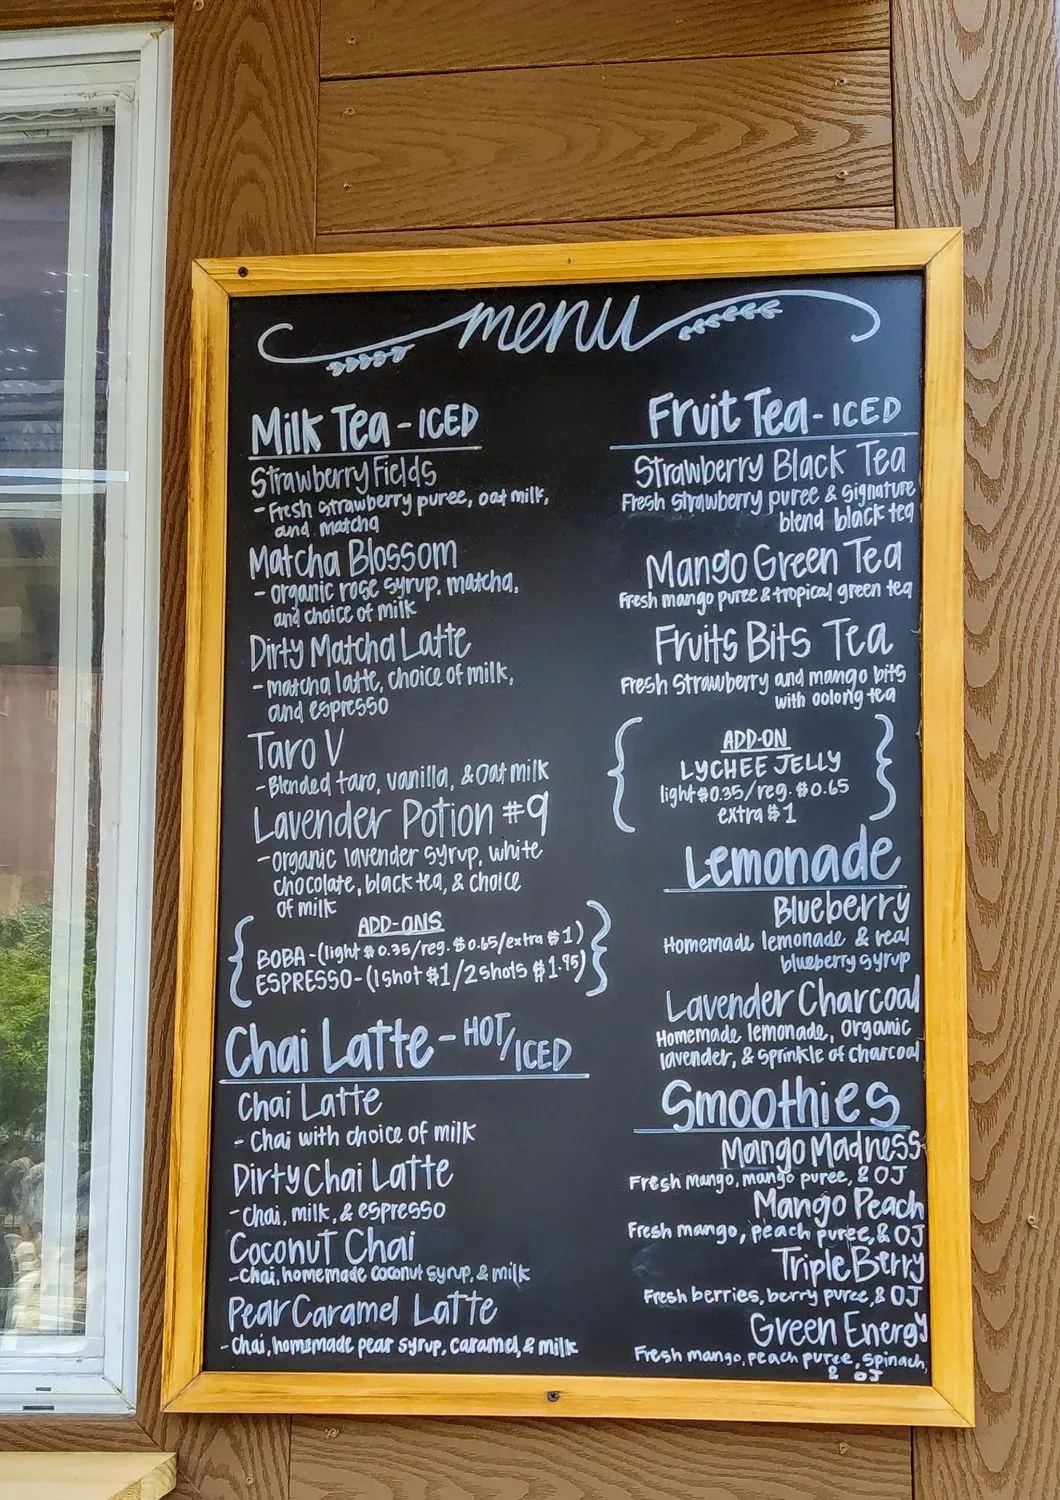 menu
Milk Tea - ICED
Strawberry Fields
- Fresh strawberry puree, oat milk,
and matcha
Matcha Blossom
- organic rose syrup, matcha,
and choice of milk
Dirty Matcha Latte
- matcha latte, choice of milk,
and espresso
Taro V
- Blended taro, vanilla, & oat milk
Lavender Potion #9
- organic lavender syrup, white
chocolate, black tea, & choice
of milk
ADD-ONS
BOBA - (light $0.35/reg. $0.65/extra $1)
ESPRESSO - (1 shot $1/2 shots $1.95)
Chai Latte - HOT/ICED
Chai Latte
- Chai with choice of milk
Dirty Chai Latte
- Chai, milk, & espresso
Coconut Chai
- Chai, homemade coconut syrup, & milk
Pear Caramel Latte
- Chai, homemade pear syrup, caramel, & milk
Fruit Tea - ICED
Strawberry Black Tea
Fresh strawberry puree & signature
blend black tea
Mango Green Tea
Fresh mango puree & tropical green tea
Fruits Bits Tea
Fresh Strawberry and mango bits
with oolong tea
ADD-ON
LYCHEE JELLY
light $0.35/reg. $0.65
extra $1
Lemonade
Blueberry
Homemade lemonade & real
blueberry syrup
Lavender Charcoal
Homemade lemonade, organic
lavender, & sprinkle of charcoal
Smoothies
Mango Madness
Fresh mango, mango puree, & OJ
Mango Peach
Fresh mango, peach puree, & OJ
Triple Berry
Fresh berries, berry puree, & OJ
Green Energy
Fresh mango, peach puree, spinach,
& OJ